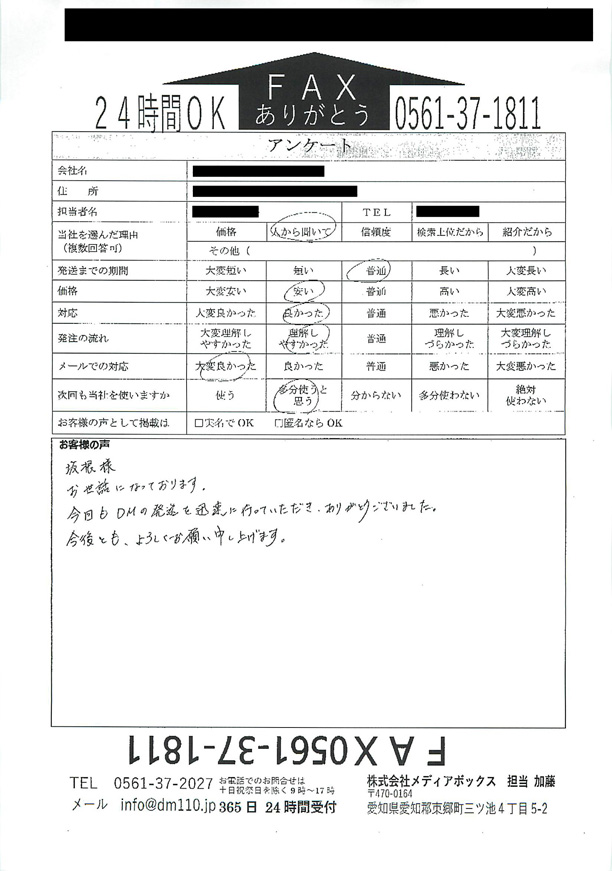 FAX
ありがとう
24時間OK 0561-37-1811
アンケート
会社名
住 所
担当者名 TEL
当社を選んだ理由 (複数回答可) 価格 人から聞いて 信頼度 検索上位だから 紹介だから
その他( )
発送までの期間 大変短い 短い 普通 長い 大変長い
価格 大変安い 安い 普通 高い 大変高い
対応 大変良かった 良かった 普通 悪かった 大変悪かった
発注の流れ 大変理解しやすかった 理解しやすかった 普通 理解しづらかった 大変理解しづらかった
メールでの対応 大変良かった 良かった 普通 悪かった 大変悪かった
次回も当社を使いますか 使う 多分使うと思う 分からない 多分使わない 絶対使わない
お客様の声として掲載は □実名でOK □匿名ならOK
お客様の声
坂根様
お世話になっております。
今回もDMの発送を迅速に行っていただき、ありがとうございました。
今後とも、よろしくお願い申し上げます。
FAX0561-37-1811
TEL 0561-37-2027 お電話でのお問合せは
土日祝祭日を除く9時～17時
メール info@dm110.jp 365日 24時間受付
株式会社メディアボックス 担当 加藤
〒470-0164
愛知県愛知郡東郷町三ツ池4丁目5-2